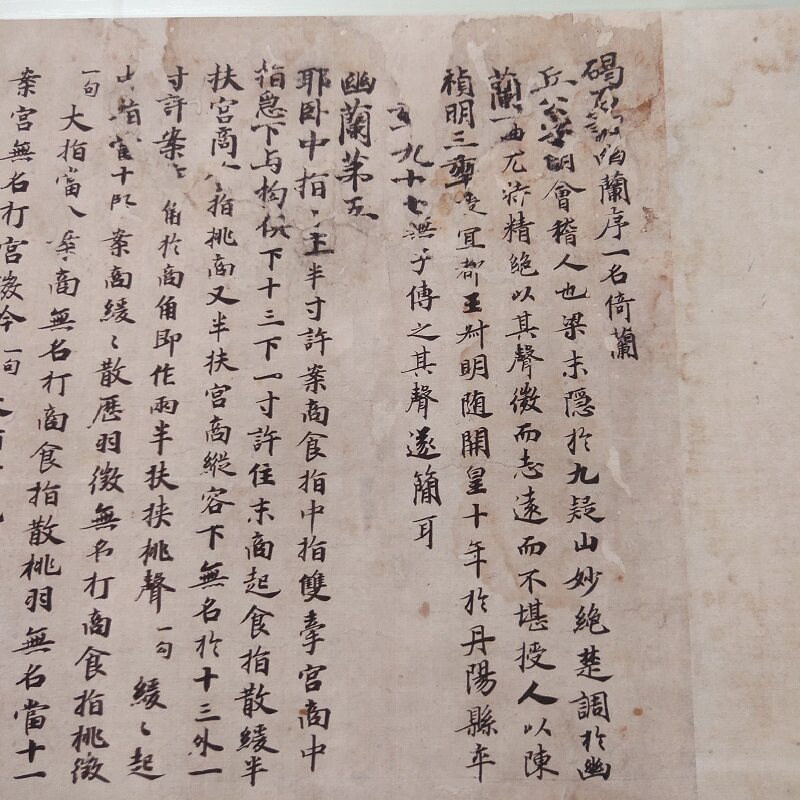 碣石調幽蘭序一名倚蘭
丘公字明會稽人也梁末隱於九疑山妙絕楚調於幽
蘭一曲尤特精絕以其聲微而志遠而不堪授人以陳
禎明三年授宜都王叔明随開皇十年於丹陽縣卒
年九十七無子傳之其聲遂簡耳
幽蘭苐五
耶卧中指〻半寸許案商食指中指雙牽宮商中
指急下与拘俱下十三下一寸許住末商起食指散緩半
扶宮商食指挑商又半扶宮商縱容下無名於十三外一
寸許案商角於商角即作兩半扶挟挑聲一句 緩〻起
無名於十三案商緩〻散歷羽徵無名打商食指挑徵
一句 大指當八案商無名打商食指散挑羽無名當十一
案宮無名打宮徵